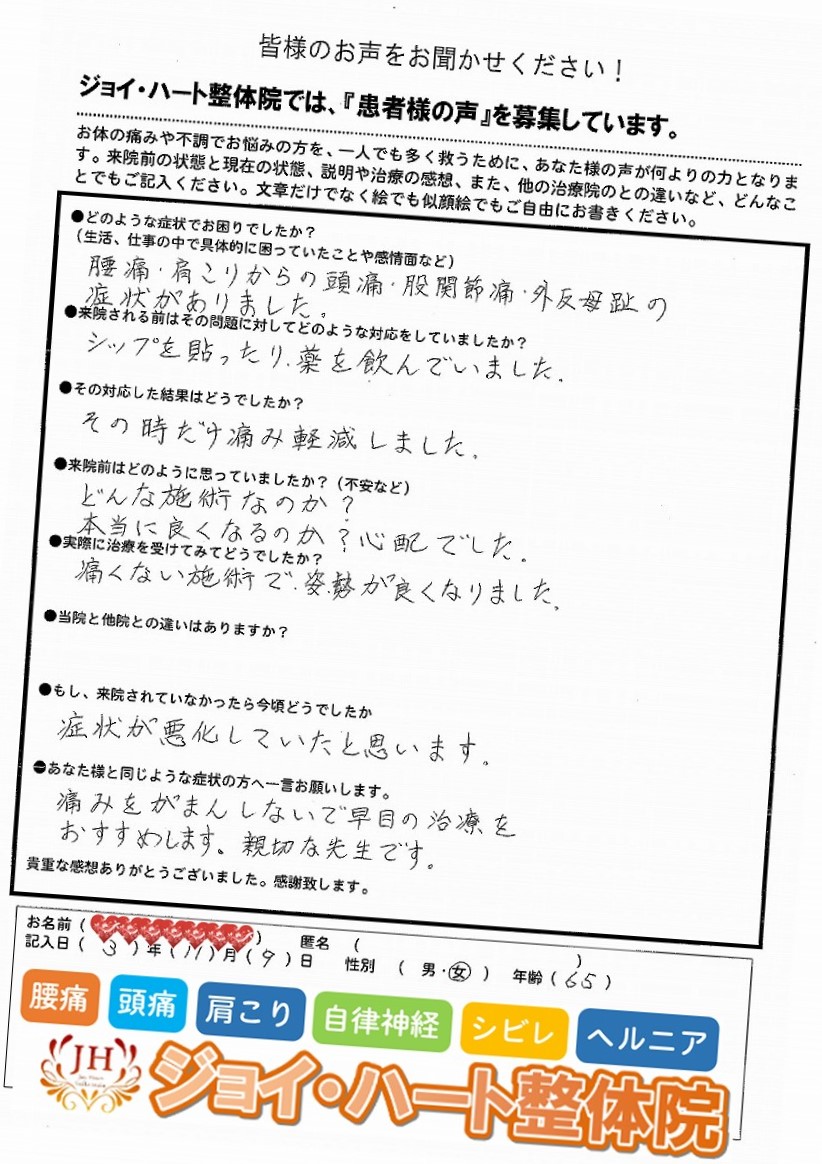 皆様のお声をお聞かせください！
ジョイ・ハート整体院では、『患者様の声』を募集しています。
お体の痛みや不調でお悩みの方を、一人でも多く救うために、あなた様の声が何よりの力となりま
す。来院前の状態と現在の状態、説明や治療の感想、また、他の治療院のとの違いなど、どんなこ
とでもご記入ください。文章だけでなく絵でも似顔絵でもご自由にお書きください。
●どのような症状でお困りでしたか？
（生活、仕事の中で具体的に困っていたことや感情面など）
腰痛・肩こりからの頭痛・股関節痛・外反母趾の
症状がありました。
●来院される前はその問題に対してどのような対応をしていましたか？
シップを貼ったり、薬を飲んでいました。
●その対応した結果はどうでしたか？
その時だけ痛み軽減しました。
●来院前はどのように思っていましたか？（不安など）
どんな施術なのか？
本当に良くなるのか？心配でした。
●実際に治療を受けてみてどうでしたか？
痛くない施術で、姿勢が良くなりました。
●当院と他院との違いはありますか？
●もし、来院されていなかったら今頃どうでしたか
症状が悪化していたと思います。
●あなた様と同じような症状の方へ一言お願いします。
痛みをがまんしないで早目の治療を
おすすめします。親切な先生です。
貴重な感想ありがとうございました。感謝致します。
お名前（ ） 匿名 （ ）
記入日（ 3 ）年（ 11 ）月（ 9 ）日 性別 （ 男・女 ） 年齢（ 65 ）
腰痛 頭痛 肩こり 自律神経 シビレ ヘルニア
JH
ジョイ・ハート整体院